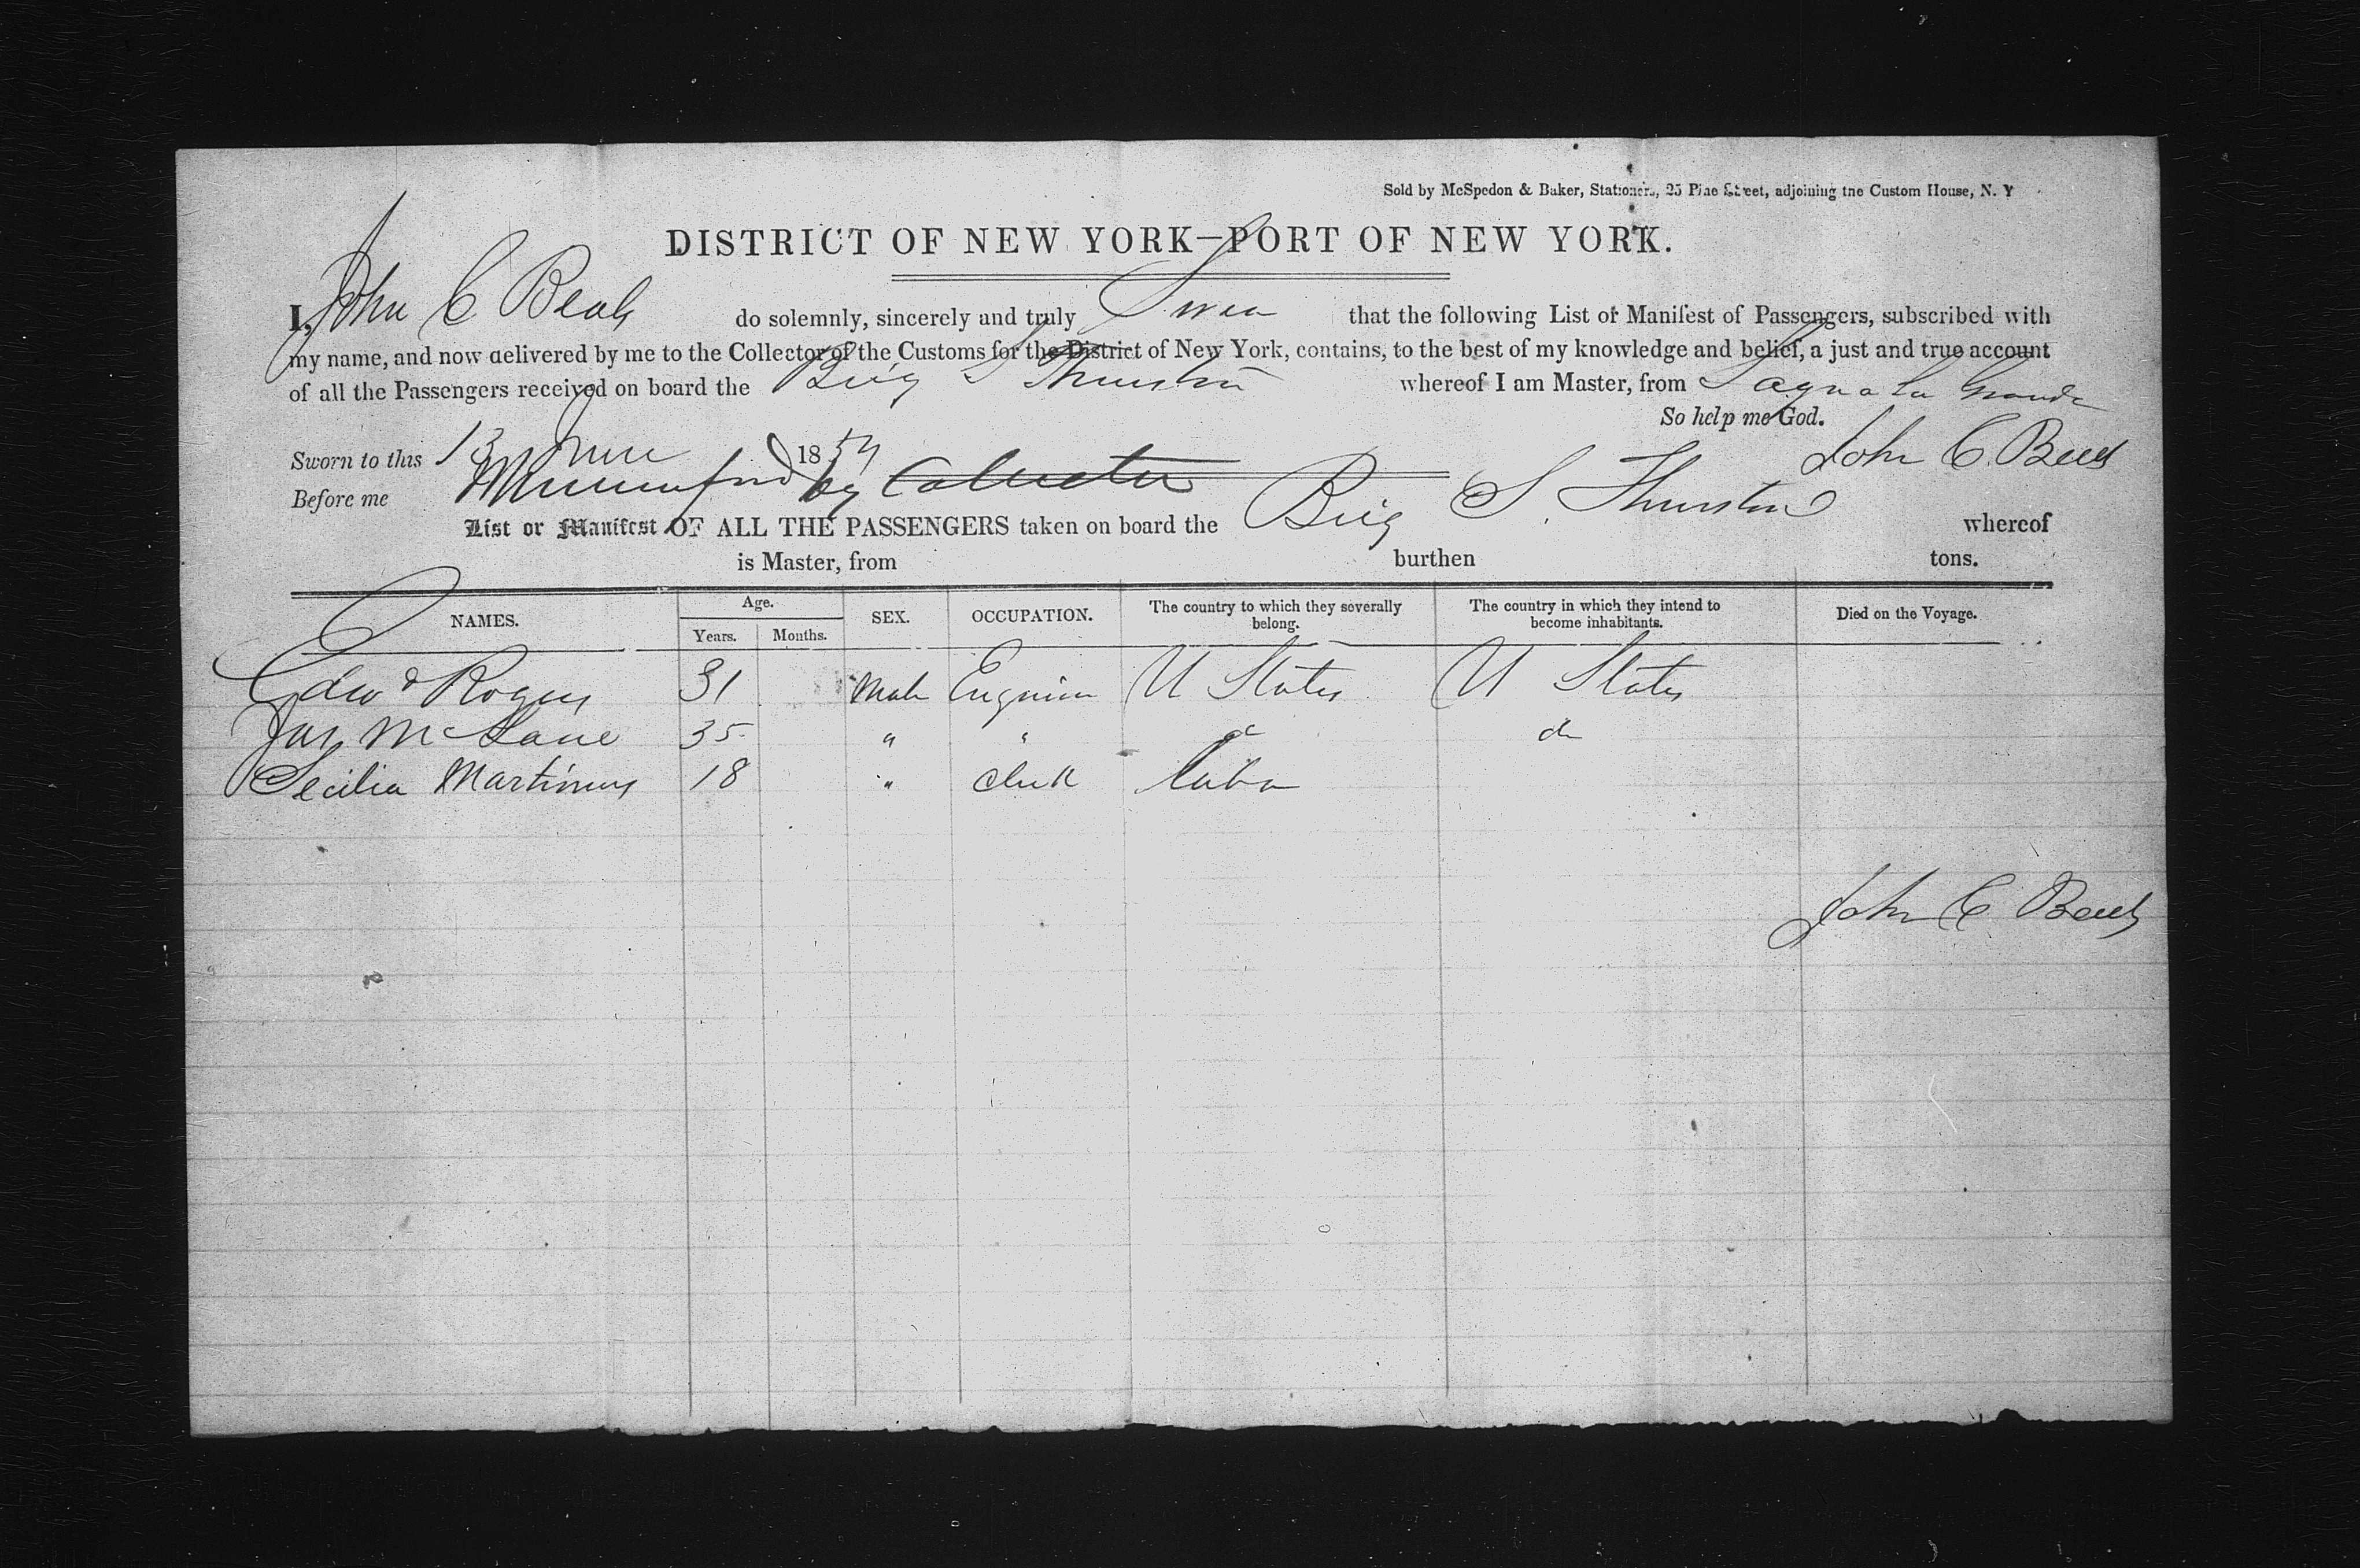 Sold by McSpedon & Baker, Stationers, 25 Pine Street, adjoining the Custom House, N. Y
DISTRICT OF NEW YORK—PORT OF NEW YORK.
I, John C Beals do solemnly, sincerely and truly Swear that the following List or Manifest of Passengers, subscribed with
my name, and now delivered by me to the Collector of the Customs for the District of New York, contains, to the best of my knowledge and belief, a just and true account
of all the Passengers received on board the Brig S Thurston whereof I am Master, from Sagua La Grande
So help me God.
Sworn to this 13 June 1854 John C. Beals
Before me
List or Manifest OF ALL THE PASSENGERS taken on board the Brig S. Thurston whereof
is Master, from burthen tons.
NAMES. Age. Years. Months. SEX. OCCUPATION. The country to which they severally belong. The country in which they intend to become inhabitants. Died on the Voyage.
Edwd Rogers 31 Male Engineer U States U States
Jas McLane 35 " " do do
Secilia Martinus 18 " Clerk Cuba
John C. Beals